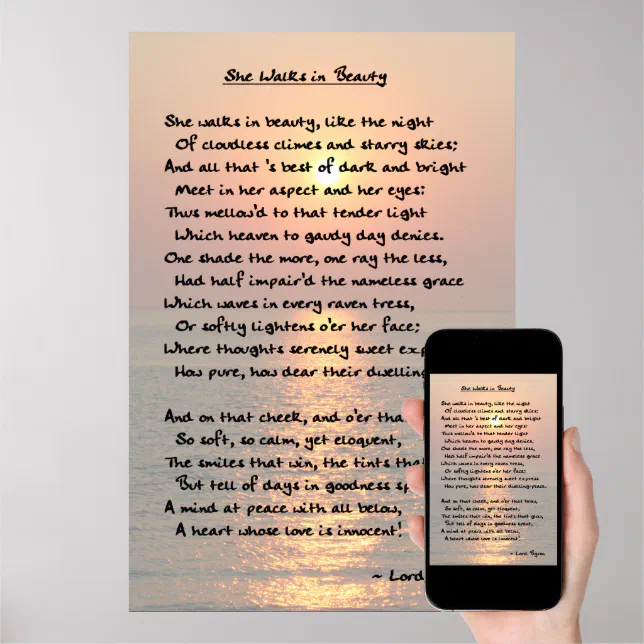 She Walks in Beauty
She walks in beauty, like the night
Of cloudless climes and starry skies;
And all that 's best of dark and bright
Meet in her aspect and her eyes:
Thus mellow'd to that tender light
Which heaven to gaudy day denies.
One shade the more, one ray the less,
Had half impair'd the nameless grace
Which waves in every raven tress,
Or softly lightens o'er her face;
Where thoughts serenely sweet exp
How pure, how dear their dwelling
And on that cheek, and o'er tha
So soft, so calm, yet eloquent,
The smiles that win, the tints tha
But tell of days in goodness sp
A mind at peace with all below,
A heart whose love is innocent!
~ Lord
She Walks in Beauty
She walks in beauty, like the night
Of cloudless climes and starry skies;
And all that 's best of dark and bright
Meet in her aspect and her eyes:
Thus mellow'd to that tender light
Which heaven to gaudy day denies.
One shade the more, one ray the less,
Had half impair'd the nameless grace
Which waves in every raven tress,
Or softly lightens o'er her face;
Where thoughts serenely sweet express
How pure, how dear their dwelling-place.
And on that cheek, and o'er that brow,
So soft, so calm, yet eloquent,
The smiles that win, the tints that glow,
But tell of days in goodness spent,
A mind at peace with all below,
A heart whose love is innocent!
~ Lord Byron